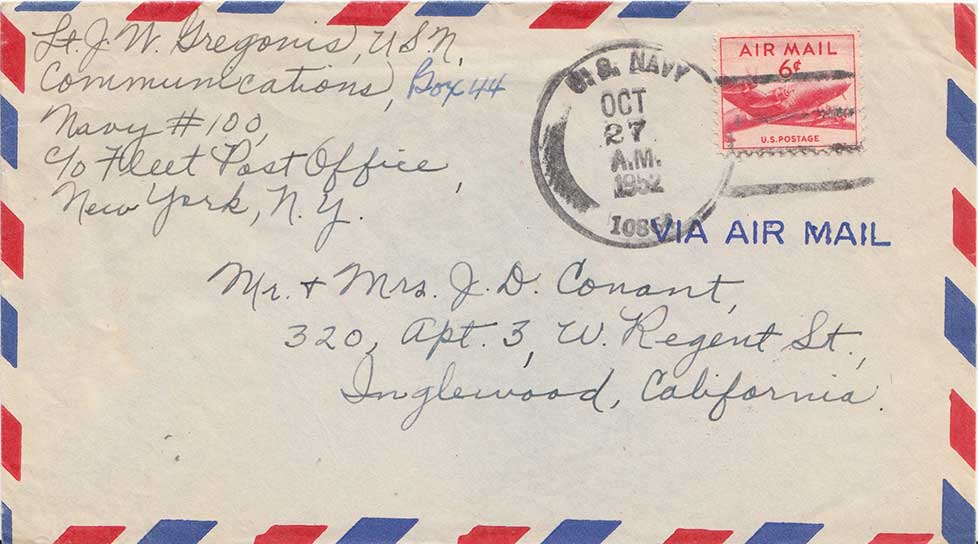 Lt. J. W. Gregonis, U.S.N,
Communications, Box 44
Navy #100,
c/o Fleet Post Office,
New York, N.Y.
U.S. NAVY
OCT
27
A.M.
1952
AIR MAIL
6¢
U.S. POSTAGE
VIA AIR MAIL
Mr. + Mrs. J. D. Conant,
320, Apt. 3, W. Regent St.,
Inglewood, California.